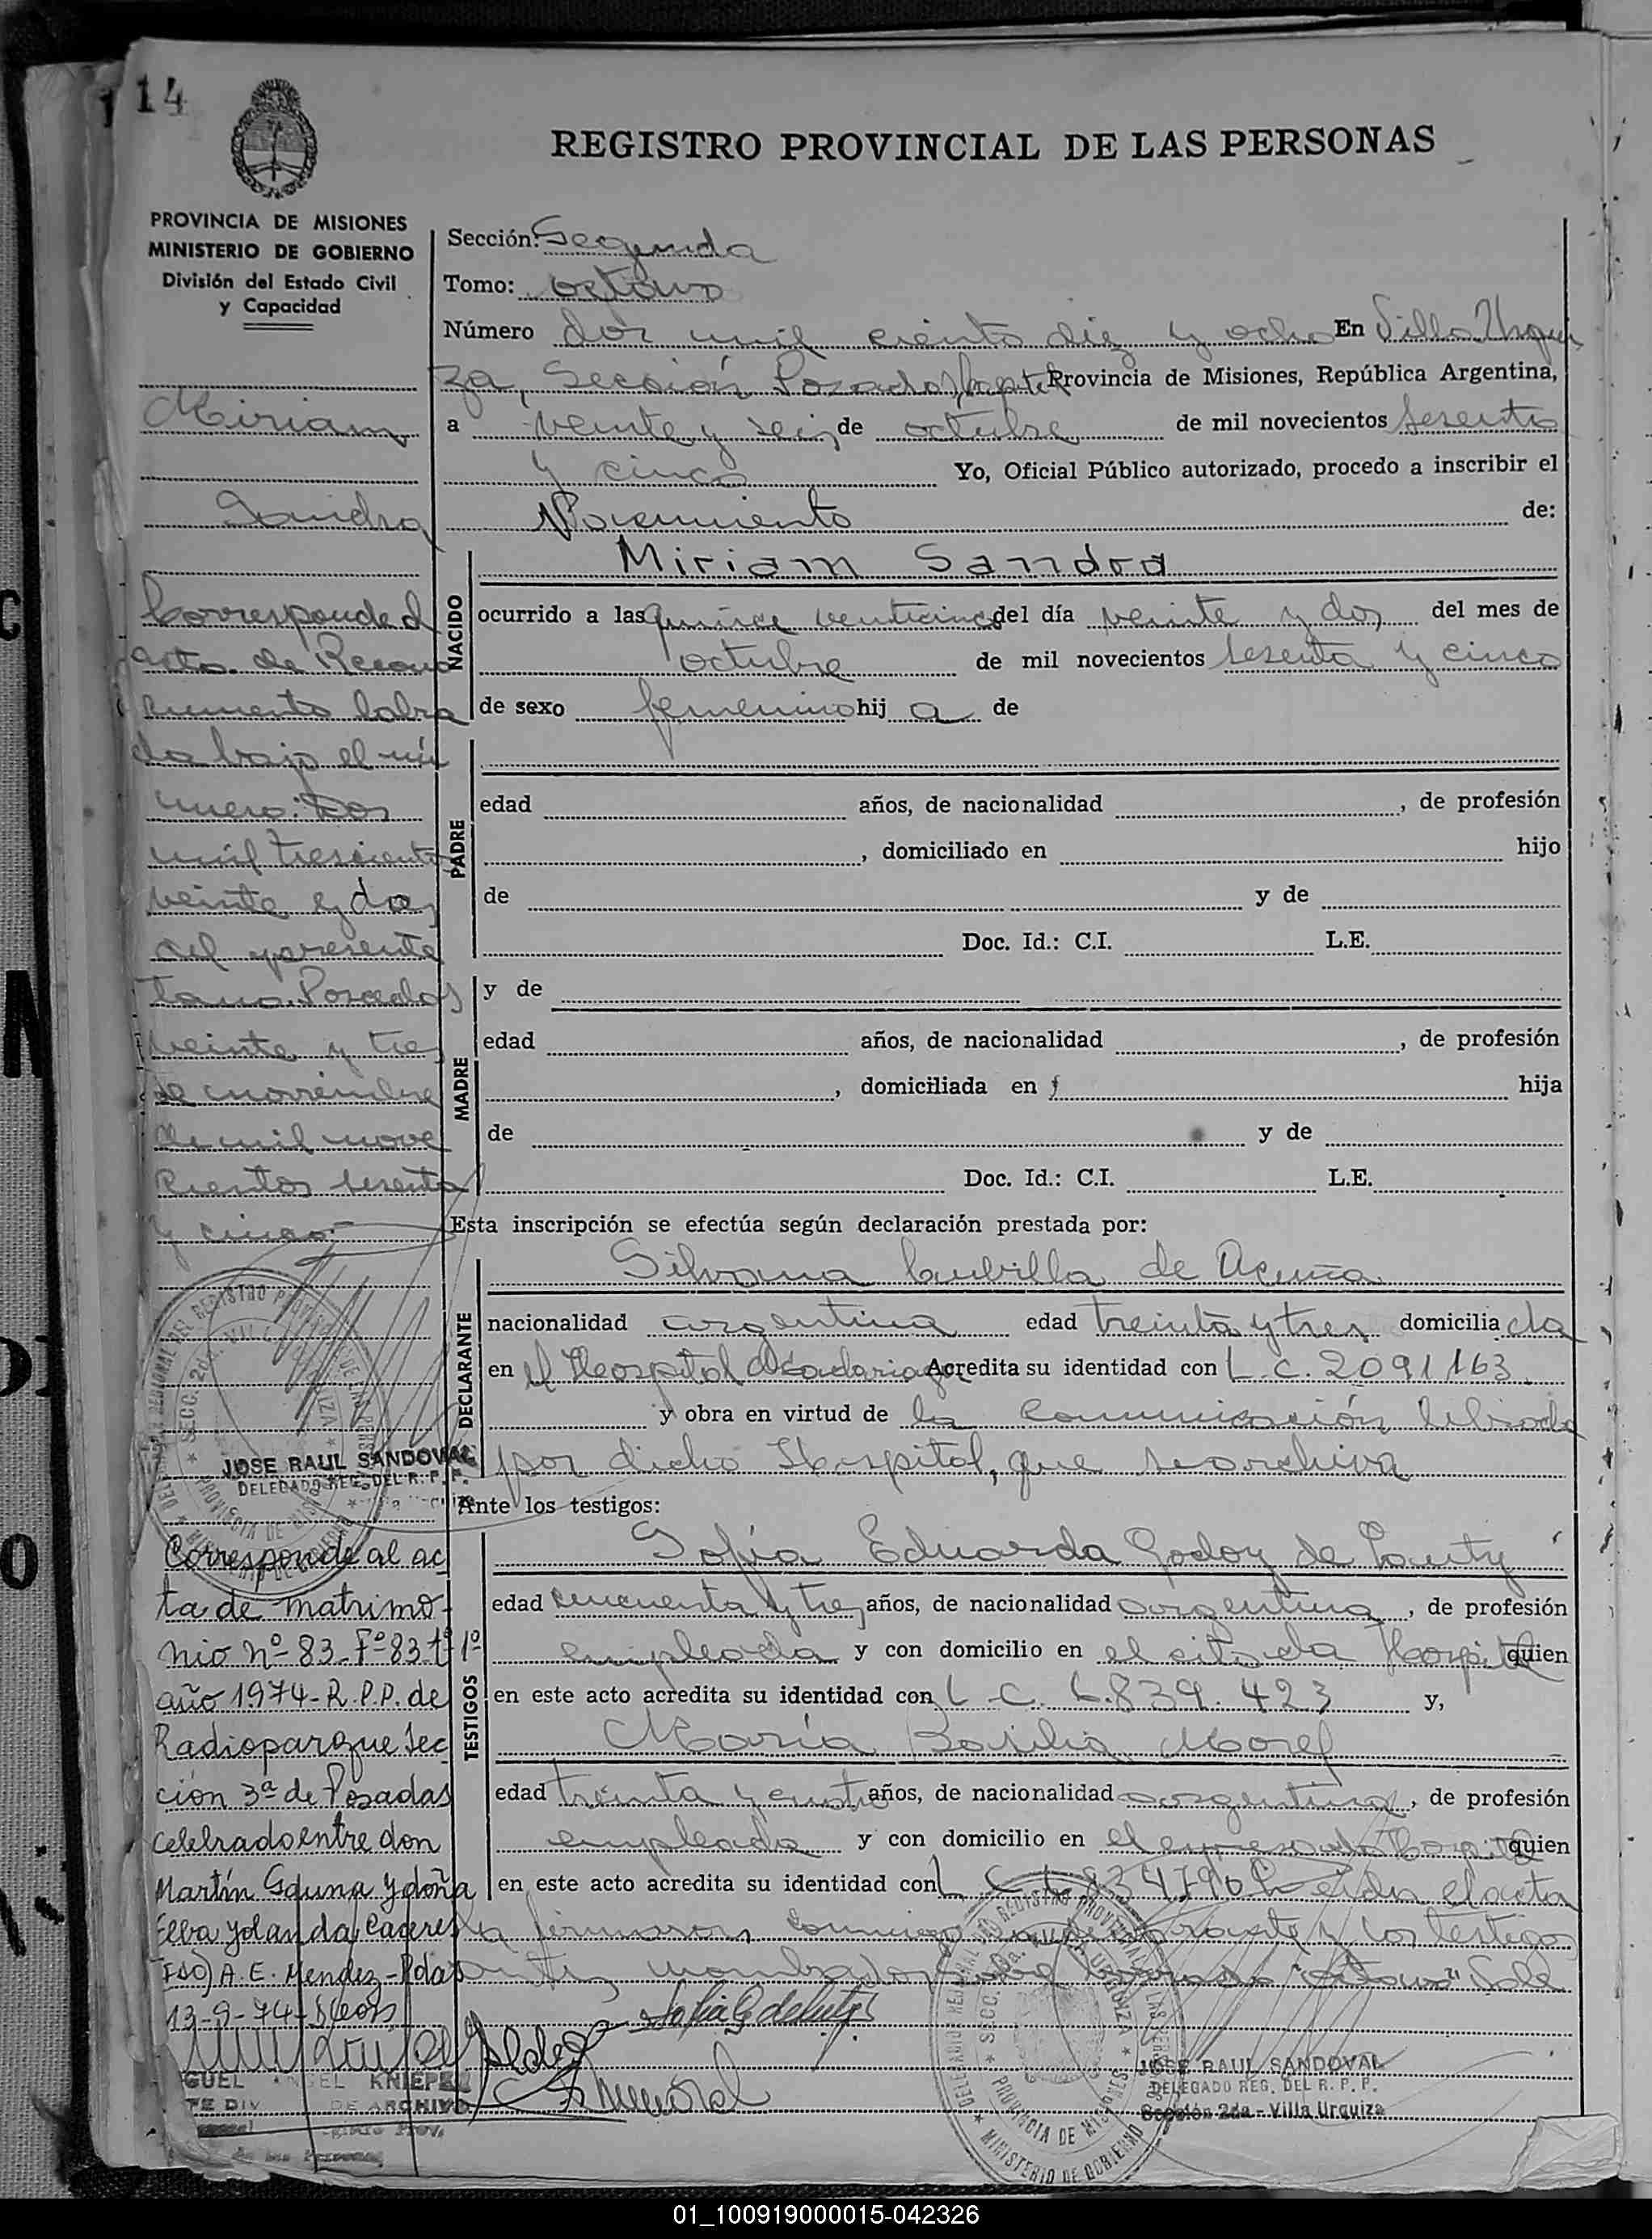 114
REGISTRO PROVINCIAL DE LAS PERSONAS
PROVINCIA DE MISIONES
MINISTERIO DE GOBIERNO
División del Estado Civil
y Capacidad
Miriam
Sandra
Corresponde al
acta de Recono
cimiento labra
da bajo el nú
mero: Dos
mil trescientos
veinte y dos
del presente
tomo. Posadas
veinte y tres
de noviembre
de mil nove
cientos sesenta
y cinco
JOSE RAUL SANDOVAL
DELEGADO REG. DEL R. P. P.
Corresponde al ac
ta de matrimo
nio nº 83 Fº 83 tº 1º
año 1974 - R.P.P. de
Radioparque Sec
ción 3ª de Posadas
celebrado entre don
Martín Gduna y doña
Elba Yolanda Caceres
FDO) A. E. Mendez - Pdas
13-9-74
GUEL ANGEL KNIEPE
TE DIV DE ARCHIVO
Sección: Segunda
Tomo: octavo
Número dos mil ciento diez y ocho En Villa Urqui
za, Sección Posadas, Provincia de Misiones, República Argentina,
a veinte y seis de octubre de mil novecientos sesenta
y cinco Yo, Oficial Público autorizado, procedo a inscribir el
Nacimiento de:
NACIDO
Miriam Sandra
ocurrido a las quince venticinco del día veinte y dos del mes de
octubre de mil novecientos sesenta y cinco
de sexo femenino hij a de
PADRE
edad años, de nacionalidad , de profesión
, domiciliado en hijo
de y de
Doc. Id.: C.I. L.E.
MADRE
y de
edad años, de nacionalidad , de profesión
, domiciliada en hija
de y de
Doc. Id.: C.I. L.E.
Esta inscripción se efectúa según declaración prestada por:
DECLARANTE
Silvana Cubilla de Acuña
nacionalidad argentina edad treinta y tres domicilia da
en el Hospital Madariaga Acredita su identidad con L.C. 2091163
y obra en virtud de la comunicación librada
por dicho Hospital, que se archiva
Ante los testigos:
TESTIGOS
Sofia Eduarda Godoy de
edad cincuenta y tres años, de nacionalidad argentina, de profesión
empleada y con domicilio en el citado Hospital quien
en este acto acredita su identidad con L.C. 6.839.423 y,
María Basilia Morel
edad treinta y cuatro años, de nacionalidad argentina, de profesión
empleada y con domicilio en el expresado Hospital quien
en este acto acredita su identidad con L C Leida el acta
la firmaron conmigo y los testigos
antes nombrados "octavo" Vale
JOSE RAUL SANDOVAL
DELEGADO REG. DEL R. P. P.
Sección 2da - Villa Urquiza
01_100919000015-042326